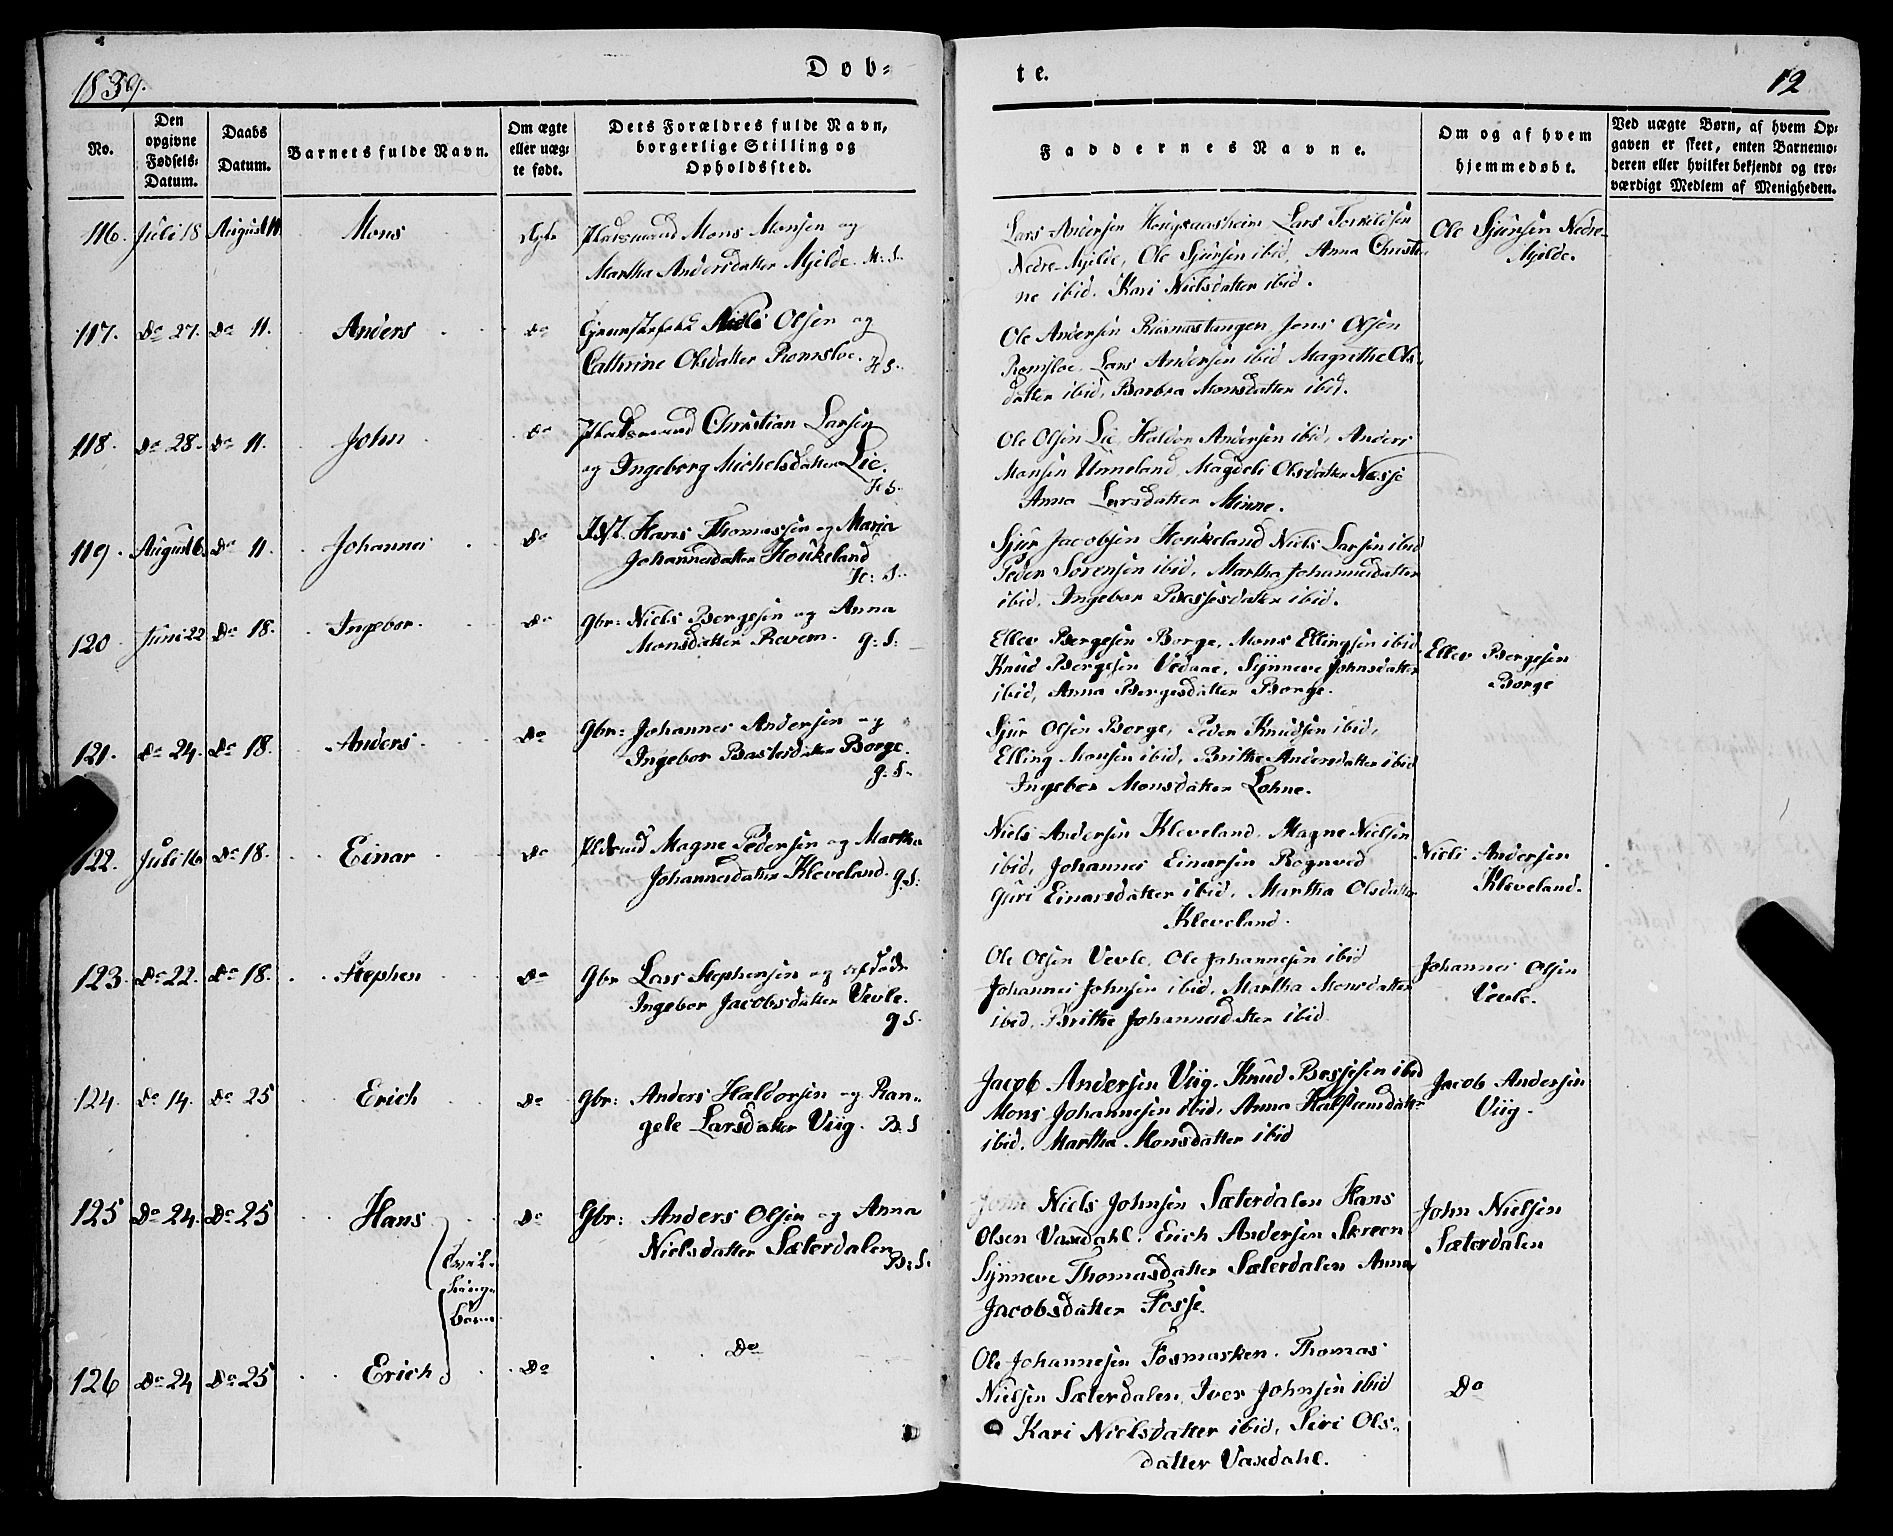 1839.
Døb-
te.
12
No.
Den opgivne Fødsels-Datum.
Daabs Datum.
Barnets fulde Navn.
Om ægte eller uægte født.
Dets Forældres fulde Navn, borgerlige Stilling og Opholdssted.
Faddernes Navne.
Om og af hvem hjemmedøbt.
Ved uægte Børn, af hvem Opgaven er skeet, enten Barnemoderen eller hvilket bekjendt og troværdigt Medlem af Menigheden.
116. Juli 18 August 11 Mons Ægte Pladsmand Mons Monsen og
Martha Andersdatter Mjelde. H: S.
Lars Andersen Lars Torkildsen
Nedre-Mjelde, Ole Sjursen ibid, Anna Christi-
ne ibid. Kari Nielsdatter ibid.
Ole Sjursen Nedre-
Mjelde.
117. Do 27. Do 11. Anders Do Niels Olsen og
Cathrine Olsdatter Romsloe. H S.
Ole Andersen Jens Olsen
Romsloe, Lars Andersen ibid Magrethe Ols-
datter ibid, Barbra Monsdatter ibid.
118. Do 28. Do 11. John Do Pladsmand Christian Larsen
og Ingeborg Michelsdatter Lie.
H S.
Ole Olsen Lie, Haldor Andersen ibid, Anders
Monsen Unneland, Magdeli Olsdatter Næsse
Anna Larsdatter Minne.
119. August 6. Do 11. Johannes Do Hans Thomassen og Maria
Johannesdatter Houkeland
H: S.
Sjur Jacobsen Houkeland Niels Larsen ibid
Peder Sørensen ibid, Martha Johannesdatter
ibid, Ingebor Bessesdatter ibid.
120 Juni 22 Do 18. Ingebor. Do Gbr: Niels Bergesen og Anna
Monsdatter Revem. g: S:
Ellev Bergesen Borge, Mons Ellingsen ibid,
Knud Bergesen Vedaae, Synneve Johnsdatter
ibid, Anna Bergesdatter Borge.
Ellev Bergesen
Borge
121. Do 24. Do 18. Anders. Do Gbr: Johannes Andersen og
Ingebor Bastesdatter Borge.
g. S.
Sjur Olsen Borge, Peder Knudsen ibid,
Elling Monsen ibid, Brithe Andersdatter ibid
Ingebor Monsdatter Lohne.
122. Juli 16 Do 18. Einar Do Magne Pedersen og Martha
Johannesdatter Kleveland. g S:
Niels Andersen Kleveland, Magne Nielsen
ibid, Johannes Einarsen Rognved
Guri Einarsdatter ibid, Martha Olsdatter
Kleveland.
Niels Andersen
Kleveland.
123. Do 22. Do 18. Stephen Do Gbr Lars Stephensen og afdøde
Ingebor Jacobsdatter Vevle.
g S.
Ole Olsen Vevle, Ole Johannesen ibid
Johannes Johnsen ibid, Martha Monsdatter
ibid, Brithe Johannesdatter ibid
Johannes Olsen
Vevle.
124. Do 14. Do 25 Erich Do Gbr: Anders Haldorsen og Ran-
gele Larsdatter Viig. B. S
Jacob Andersen Viig. Knud Bessesen ibid
Mons Johannesen ibid, Anna Halsteinsdatter
ibid. Martha Monsdatter ibid
Jacob Andersen
Viig.
125 Do 24. Do 25 Hans Do Gbr: Anders Olsen og Anna
Nielsdatter Sæterdalen
B: S.
Tvil-
linge
børn
Niels Johnsen Sæterdalen Hans
Olsen Vaxdahl. Erich Andersen Skreen
Synneve Thomasdatter Sæterdalen Anna
Jacobsdatter Fosse.
John Nielsen
Sæterdalen
126 Do 24 Do 25 Erich Do Do
Ole Johannesen Fosmarken. Thomas
Nielsen Sæterdalen, Iver Johnsen ibid
Kari Nielsdatter ibid, Siri Ols-
datter Vaxdahl.
Do